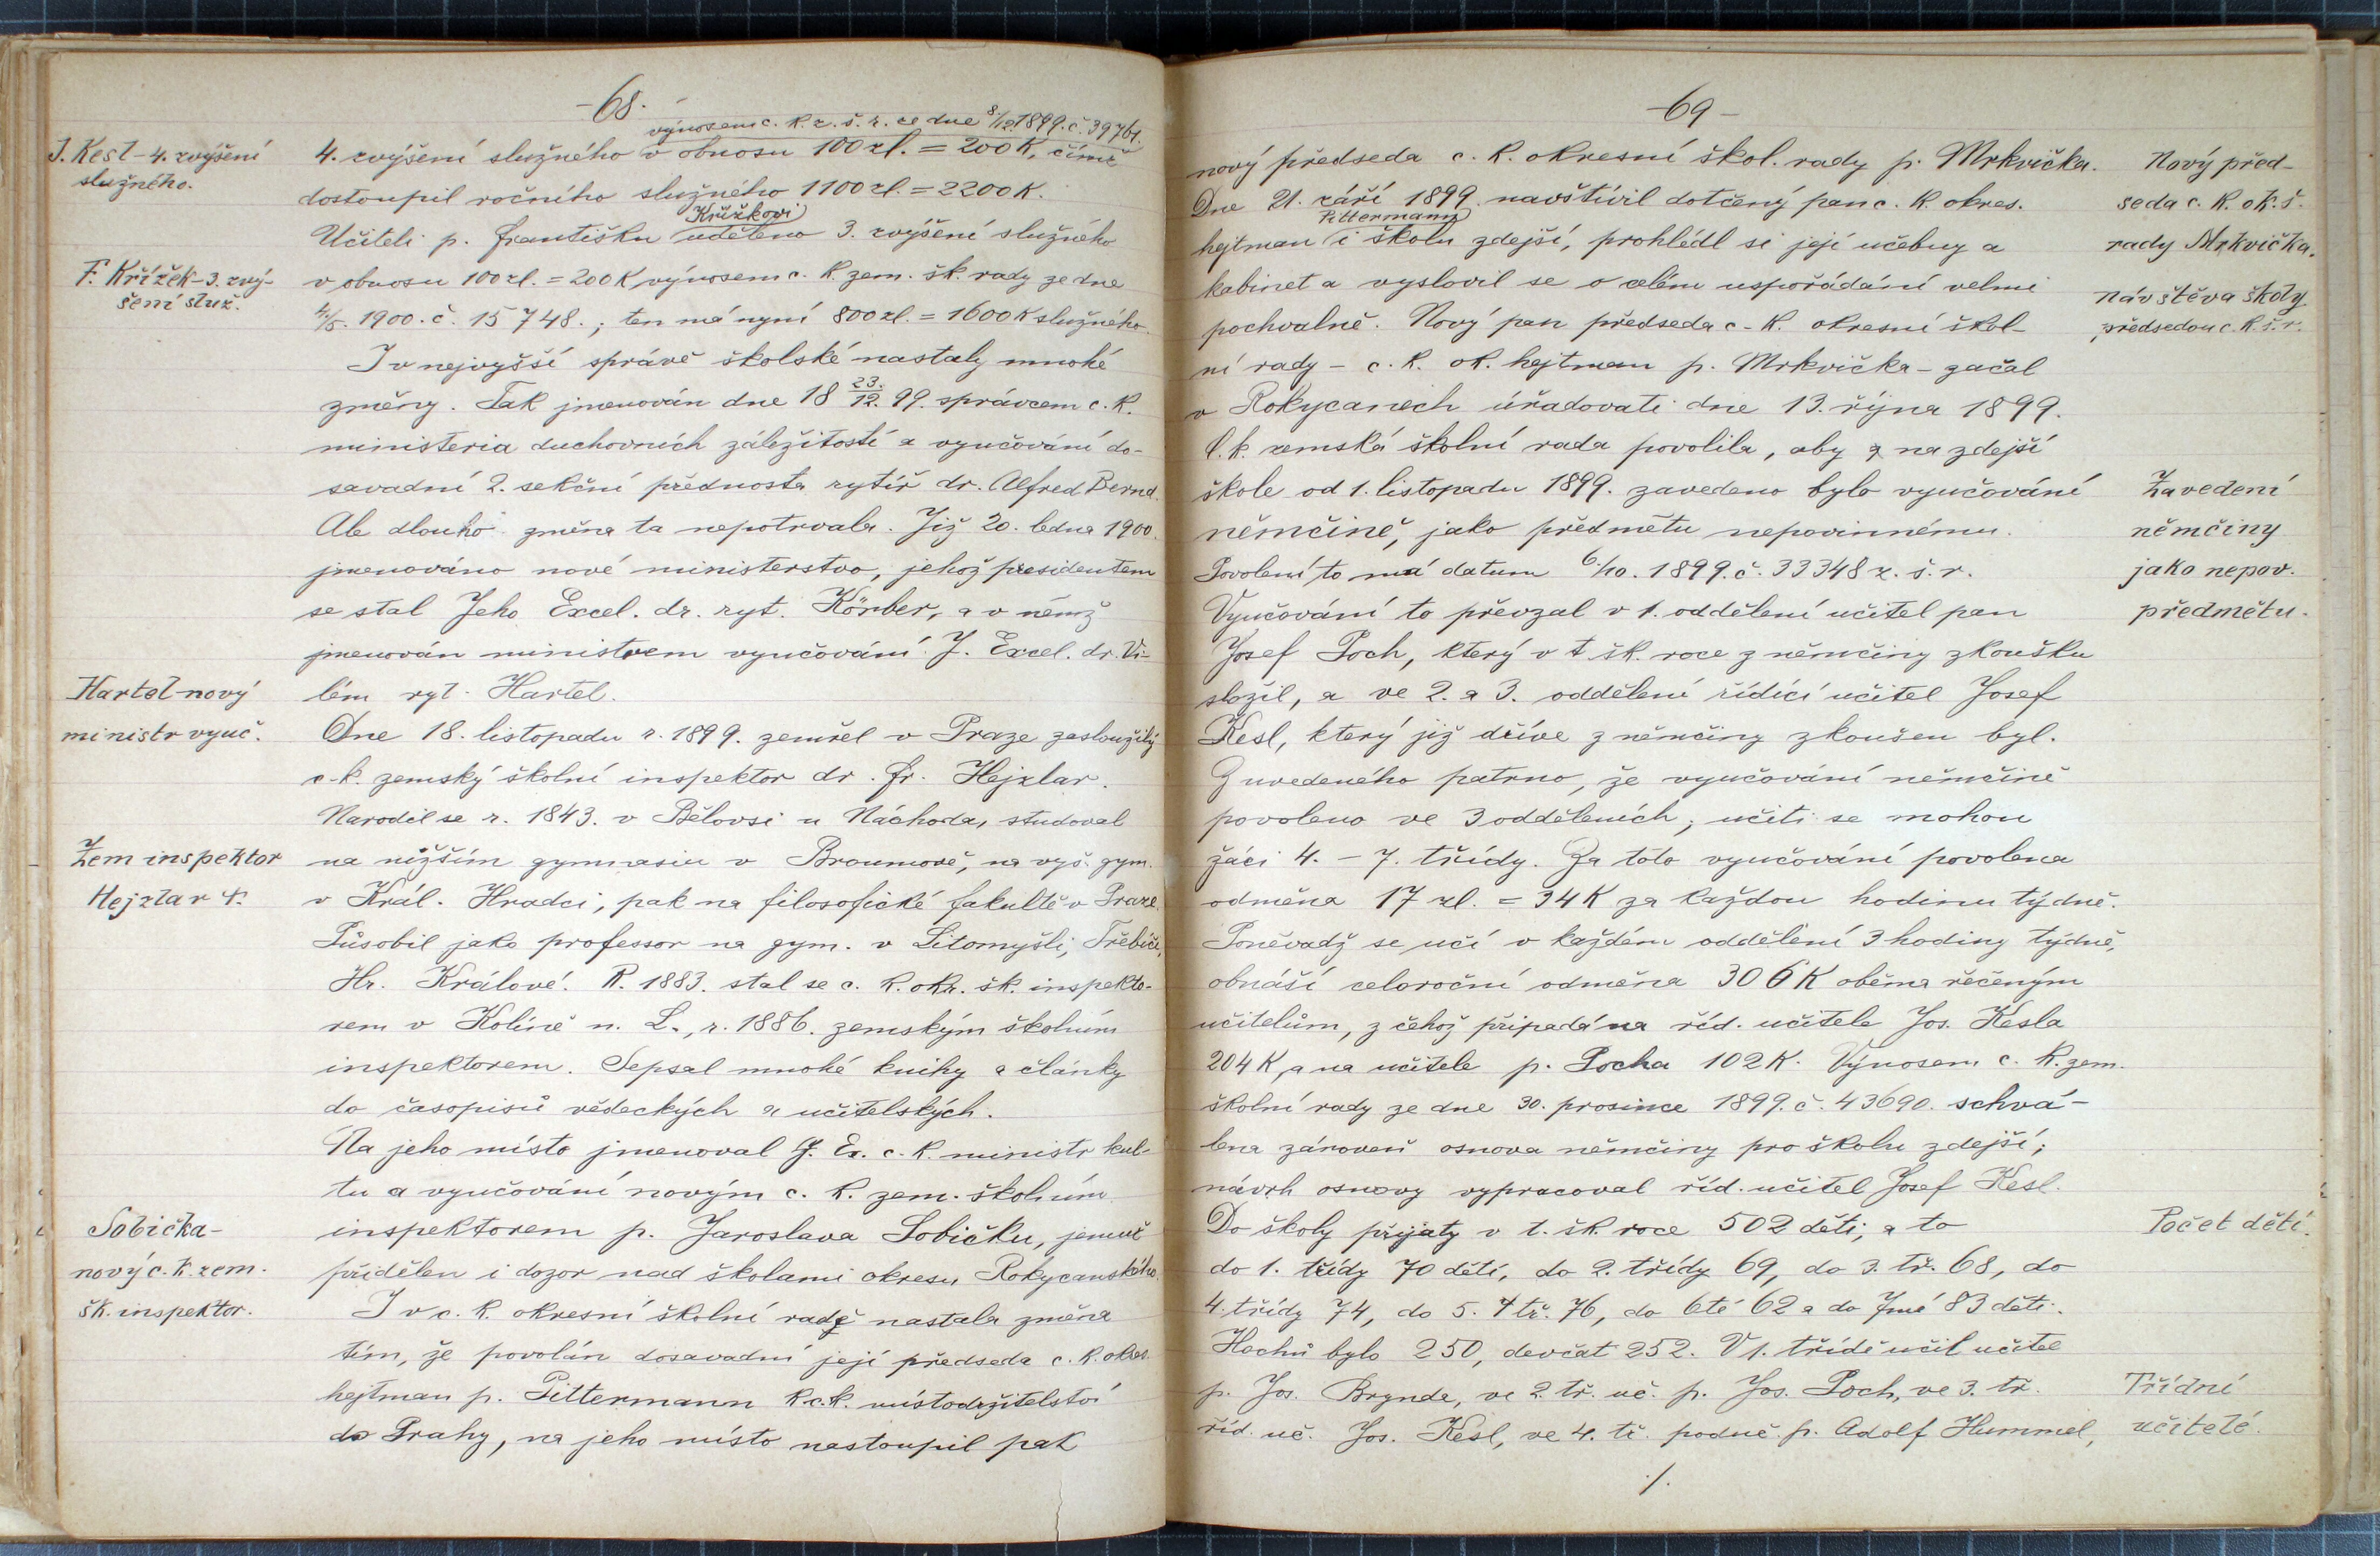 -68.
výnosem c. k. z. š. r. ze dne 8./12. 1899. č. 39761.
J. Kesl - 4. zvýšení
služného.
4. zvýšení služného v obnosu 100 zl. = 200 K, čímž
dostoupil ročního služného 1100 zl. = 2200 K.
Křížkovi
Učiteli p. Františku uděleno 3. zvýšení služného
F. Křížek - 3. zvý-
šení služ.
v obnosu 100 zl. = 200 K výnosem c. k. zem. šk. rady ze dne
4./5. 1900. č. 15748.; ten má nyní 800 zl. = 1600 K služného.
I v nejvyšší správě školské nastaly mnohé
změny. Tak jmenován dne 18 23./12. 99. správcem c. k.
ministeria duchovních záležitostí a vyučování do-
savadní 2. sekční přednosta rytíř dr. Alfred Bernd.
Ale dlouho změna ta nepotrvala. Již 20. ledna 1900.
jmenováno nové ministerstvo, jehož presidentem
se stal Jeho Excel. dr. ryt. Körber, a v němž
jmenován ministrem vyučování J. Excel. dr. Vi-
Hartel nový
ministr vyuč.
lém ryt. Hartel.
Dne 18. listopadu r. 1899. zemřel v Praze zasloužilý
c. k. zemský školní inspektor dr. Fr. Hejzlar.
Narodil se r. 1843. v Bělovsi u Náchoda, studoval
Zem inspektor
Hejzlar †.
na nižším gymnasiu v Broumově, na vyš. gym.
v Král. Hradci, pak na filosofické fakultě v Praze.
Působil jako professor na gym. v Litomyšli, Třebíči,
Hr. Králové. R. 1883. stal se c. k. okr. šk. inspekto-
rem v Kolíně n. L., r. 1886. zemským školním
inspektorem. Sepsal mnohé knihy a články
do časopisů vědeckých a učitelských.
Na jeho místo jmenoval J. Ex. c. k. ministr kul-
tu a vyučování novým c. k. zem. školním
Sobička -
nový c. k. zem.
šk. inspektor.
inspektorem p. Jaroslava Sobičku, jemuž
přidělen i dozor nad školami okresu Rokycanského.
I v c. k. okresní školní radě nastala změna
tím, že povolán dosavadní její předseda c. k. okres.
hejtman p. Pittermann k c. k. místodržitelství
do Prahy, na jeho místo nastoupil pak
-69-
nový předseda c. k. okresní škol. rady p. Mrkvička.
Nový před-
seda c. k. ok. š.
rady Mrkvička.
Dne 21. září 1899. navštívil dotčený pan c. k. okres.
Pittermann
hejtman i školu zdejší, prohlédl si její učebny a
kabinet a vyslovil se o celém uspořádání velmi
Návštěva školy
předsedou c. k. š. r.
pochvalně. Nový pan předseda c. k. okresní škol-
ní rady - c. k. ok. hejtman p. Mrkvička - začal
v Rokycanech úřadovati dne 13. října 1899.
C. k. zemská školní rada povolila, aby na zdejší
škole od 1. listopadu 1899. zavedeno bylo vyučování
Zavedení
němčiny
jako nepov.
předmětu.
němčině, jako předmětu nepovinnému.
Povolení to má datum 6./10. 1899. č. 33348 z. š. r.
Vyučování to převzal v 1. oddělení učitel pan
Josef Poch, který v t. šk. roce z němčiny zkoušku
složil, a ve 2. a 3. oddělení řídící učitel Josef
Kesl, který již dříve z němčiny zkoušen byl.
Z uvedeného patrno, že vyučování němčině
povoleno ve 3 odděleních; učiti se mohou
žáci 4. - 7. třídy. Za toto vyučování povolena
odměna 17 zl. = 34 K za každou hodinu týdně.
Poněvadž se učí v každém oddělení 3 hodiny týdně,
obnáší celoroční odměna 306 K oběma řečeným
učitelům, z čehož připadá na říd. učitele Jos. Kesla
204 K, a na učitele p. Pocha 102 K. Výnosem c. k. zem.
školní rady ze dne 30. prosince 1899. č. 43690. schvá-
lena zároveň osnova němčiny pro školu zdejší;
návrh osnovy vypracoval říd. učitel Josef Kesl.
Do školy přijaty v t. šk. roce 502 děti; a to
Počet dětí.
do 1. třídy 70 dětí, do 2. třídy 69, do 3. tř. 68, do
4. třídy 74, do 5. tř. 76, do 6té 62 a do 7mé 83 děti.
Hochů bylo 250, děvčat 252. V 1. třídě učil učitel
p. Jos. Brynda, ve 2. tř. uč. p. Jos. Poch, ve 3. tř.
Třídní
učitelé.
říd. uč. Jos. Kesl, ve 4. tř. poduč. p. Adolf Hummel,
./.